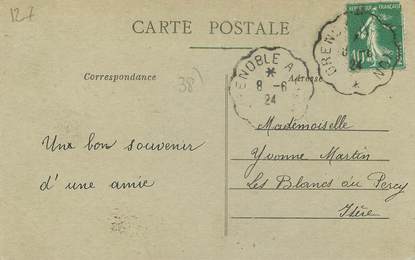 12.7
CARTE POSTALE
Correspondance
38)
Adresse
GRENOBLE A
8 - 6
24
GRENOBLE
8 - 6
24
10
Une bon souvenir
d'une amie
Mademoiselle
Yvonne Martin
Les Blancs au Percy
Isère